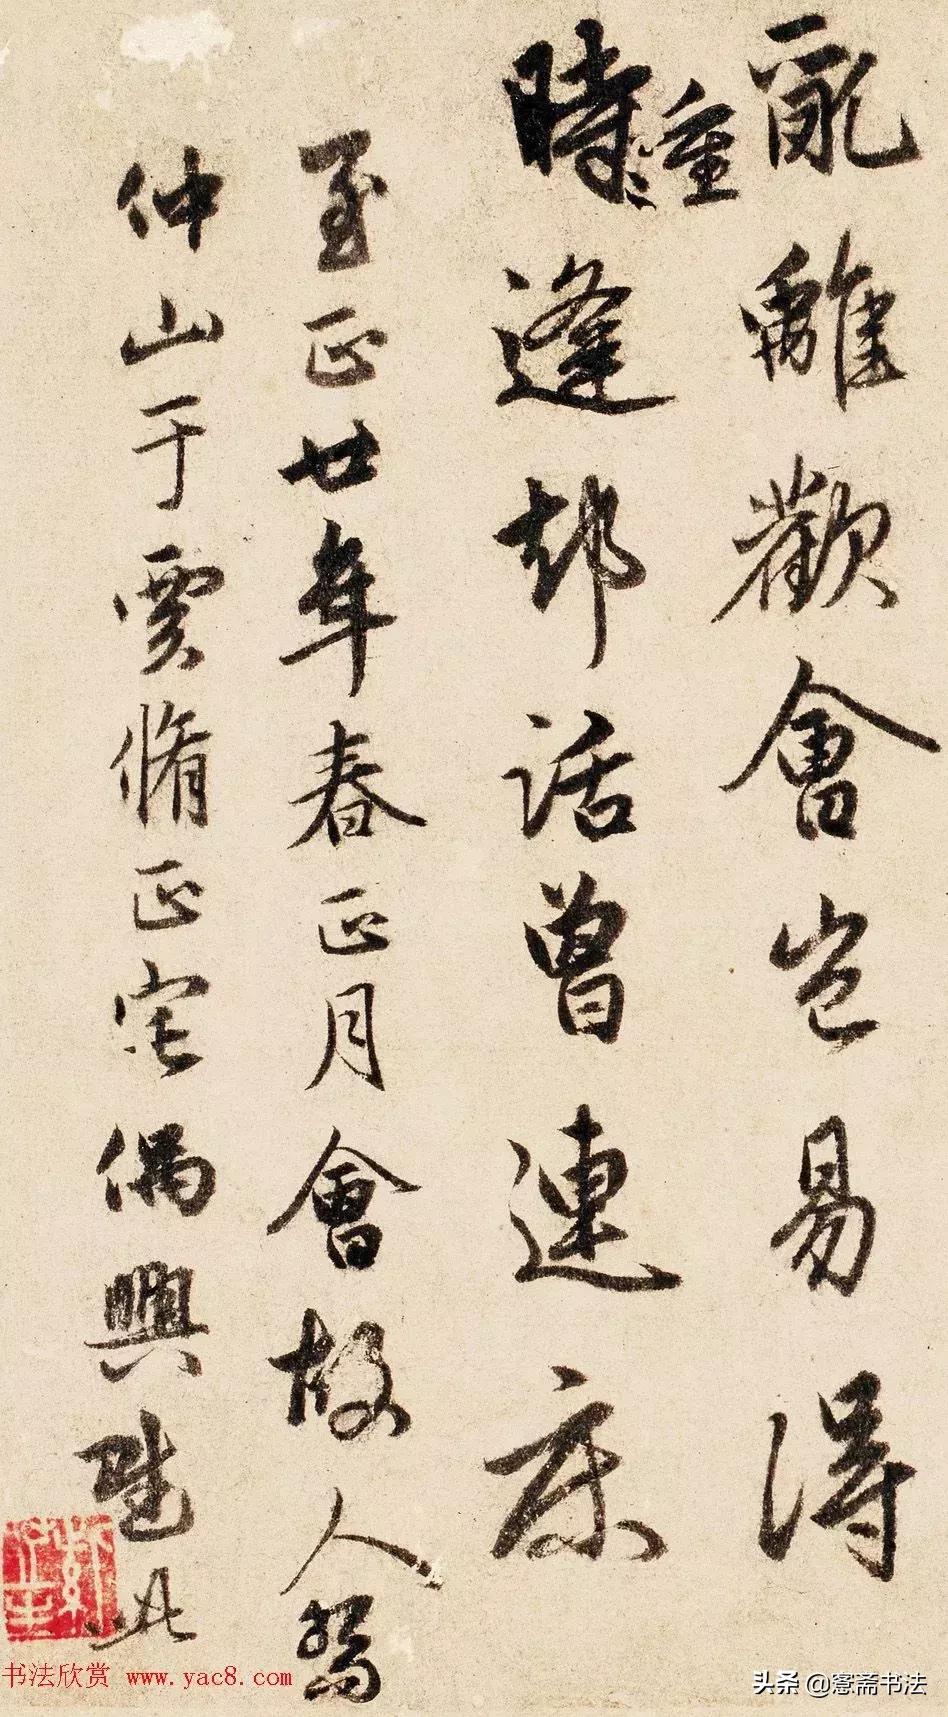 亂離歡會豈易得
時重逢却話曾連床
至正廿年春正月會故人
仲山于賈脩正宅偶興此
书法欣赏 www.yac8.com
头条 @愙斋书法